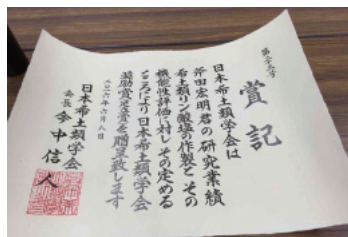 第十五号
賞記
日本希土類学会は
斧田宏明君の研究業績
希土類リン酸塩の作製とその
機能性評価に対しその定める
ところにより日本希土類学会
奨励賞を贈呈致します
二〇一六年六月八日
日本希土類学会
会長 今中信人